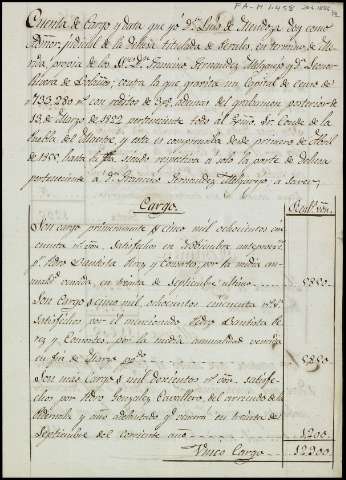 FA-M 1458
Cuenta de Cargo y data que yó Dn. Luis de Mendoza doy como
Admor. judicial de la Dehesa titulada de Perales, en termino de Me-
rida, propia de los Dn. Francisco Fernandez Melgarejo y Dª Leonor
Rivera de Bolaños; contra la que gravita un Capital de Censo de
733,280 rs con reditos de
13, de Marzo de 1822 perteneciente todo al Sr. Conde de la
Puebla del Maestre, y esta es comprensiba desde primero de Abril
de 1855 hasta la fha, siendo respectiva a solo la parte de Dehesa
perteneciente á Dn. Francisco Fernandez Melgarejo, a saver;
Cargo. Reals. von.
Son cargo primeramente cinco mil ochocientos cin-
cuenta rs. von. Satisfechos en Diciembre anteprocsi-
por Pedro Bautista Rey y Consortes, por la media an-
ualidad vencida, en treinta de Septiembre ultimo 5850.
Son Cargo cinco mil ochocientos cincuenta rs. von.
satisfechos por el mencionado Pedro Bautista R-
rey y Consortes, por la media anualidad vencida
en fin de Marzo 5850.
Son mas Cargo mil doscientos rs. von. satisfe-
chos por Pedro Gonzalez Cavallero, del arriendo de la
Vellota y año adelantado qe. vencerá en treinta de
Septiembre del corriente año 1200.
Unico Cargo 12900.